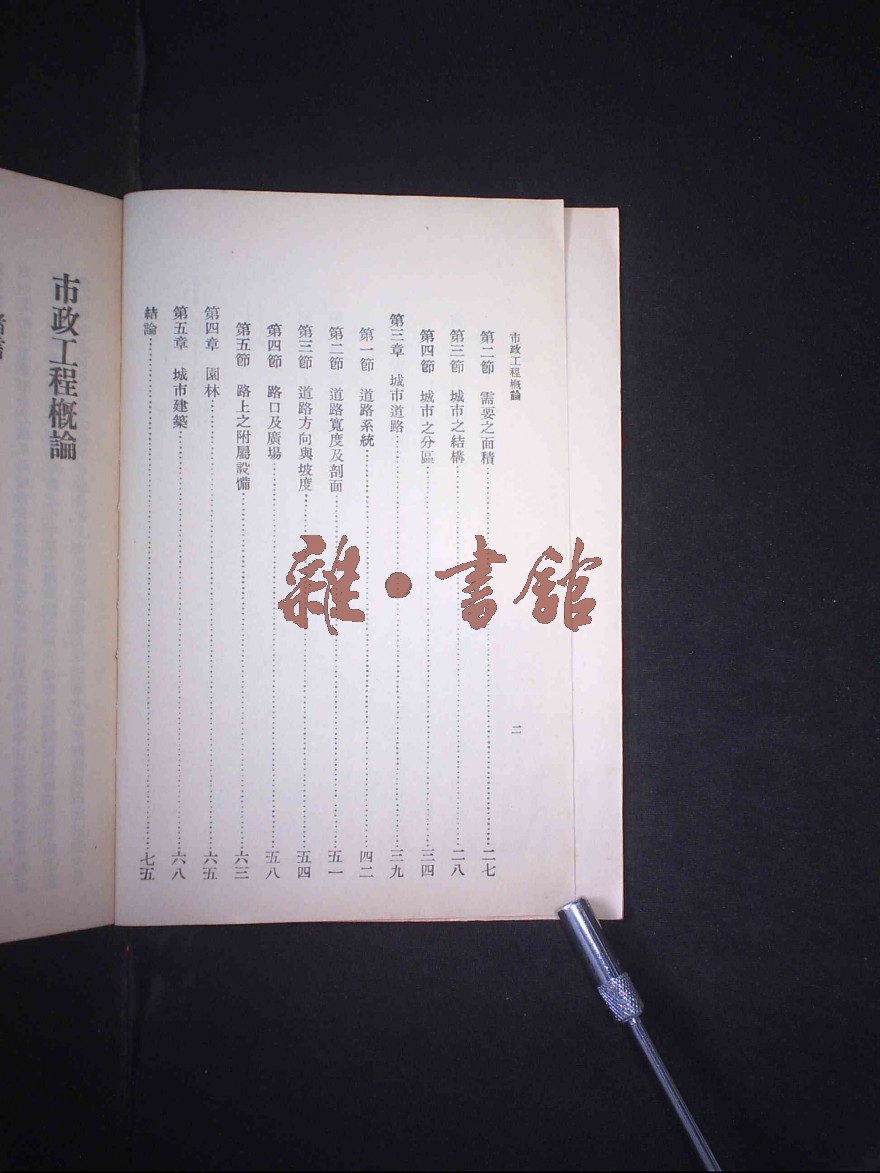 市政工程概論
二
第二節 需要之面積 二七
第三節 城市之結構 二八
第四節 城市之分區 三四
第三章 城市道路 三九
第一節 道路系統 四二
第二節 道路寬度及剖面 五一
第三節 道路方向與坡度 五四
第四節 路口及廣場 五八
第五節 路上之附屬設備 六三
第四章 園林 六五
第五章 城市建築 六八
結論 七五
市政工程概論
雜·書館